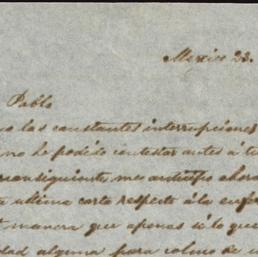 Mexico 23.
Pablo
las constantes interrupciones
no he podido contestar antes á tu
consiguiente me anticipo ahora
ultima carta respecto á la
manera que apenas sé lo que
alguna para colmo de